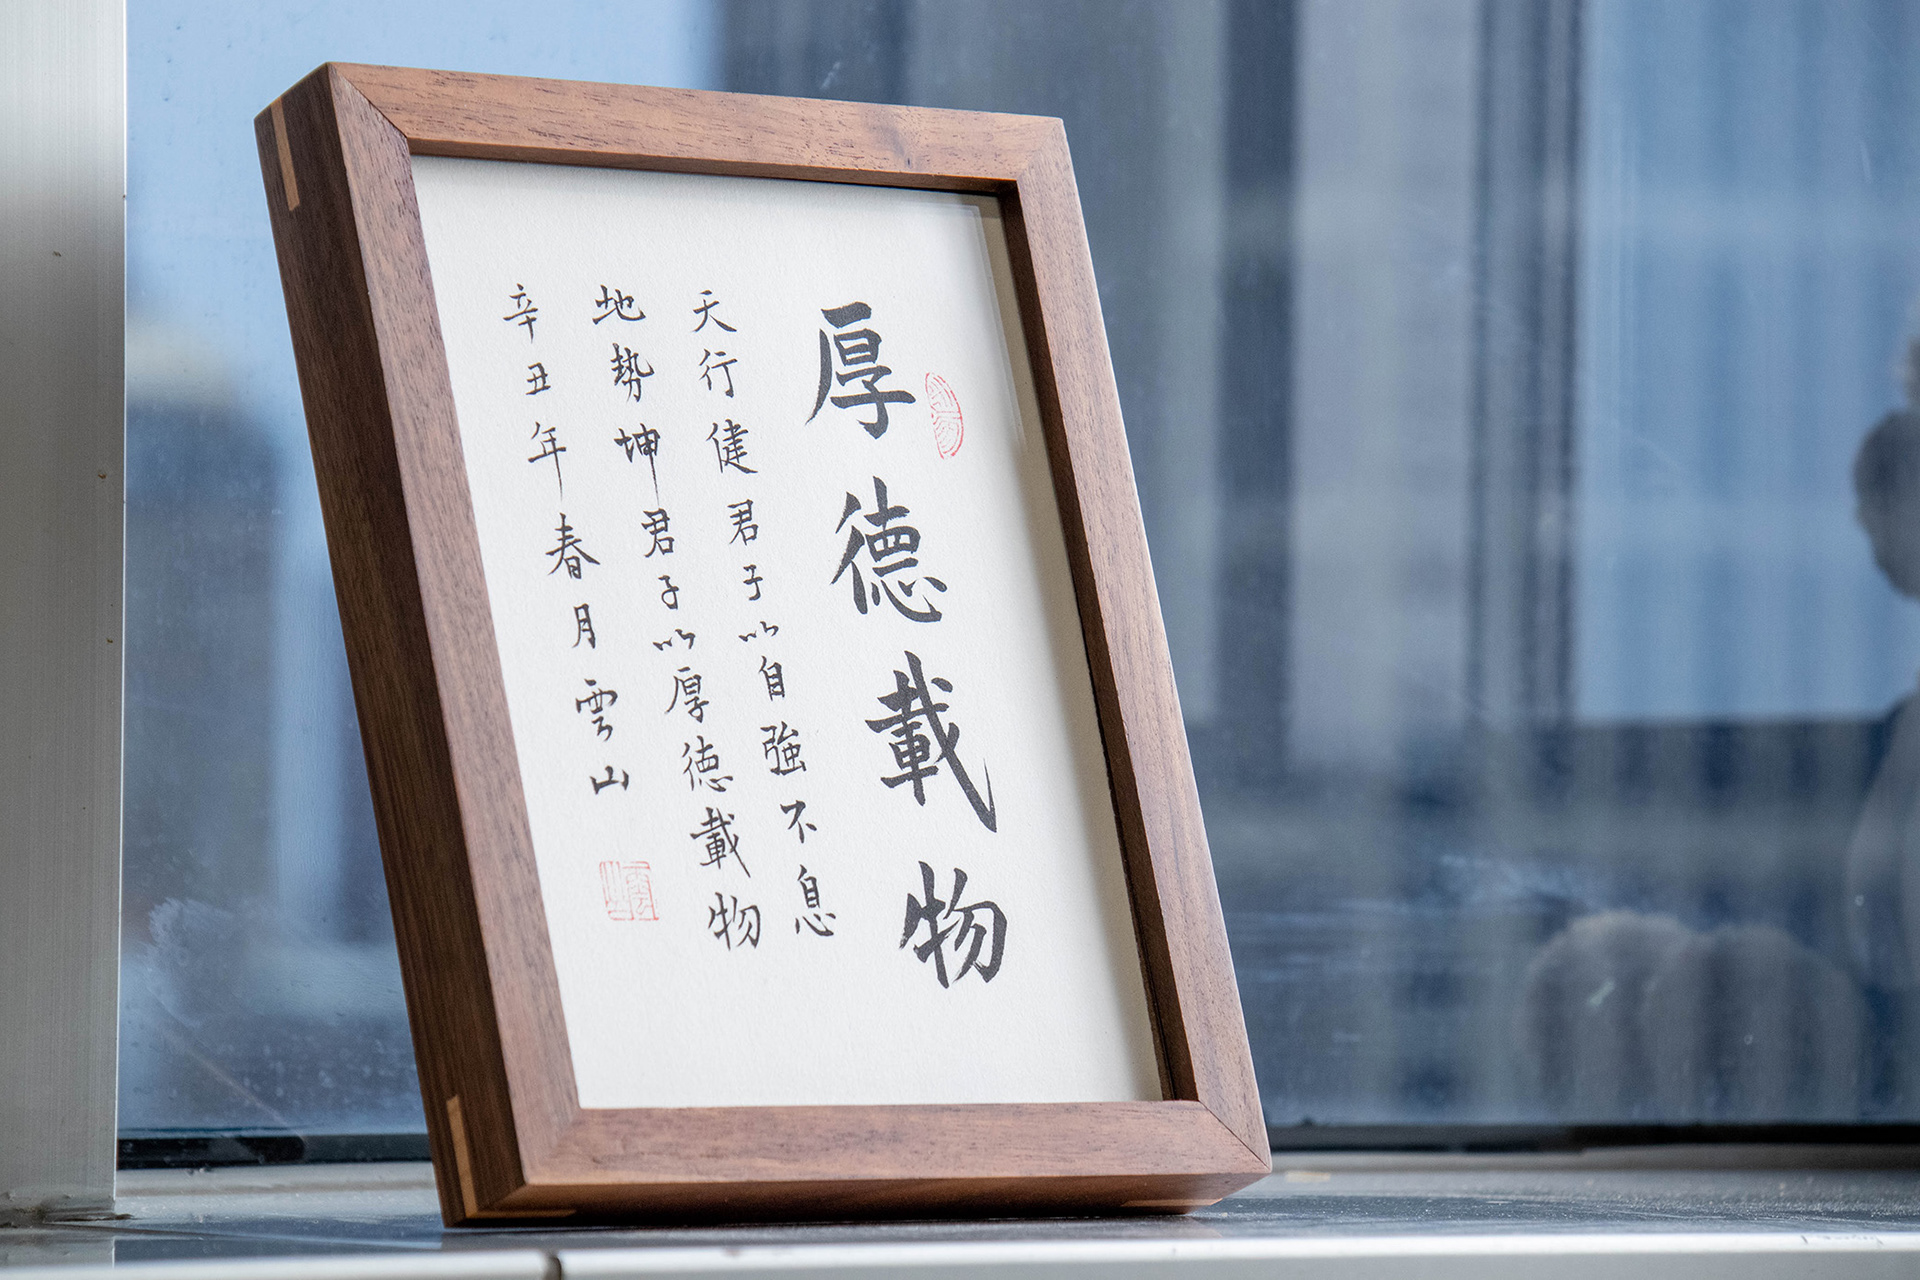 厚德載物
天行健君子以自強不息
地勢坤君子以厚德載物
辛丑年春月雲山